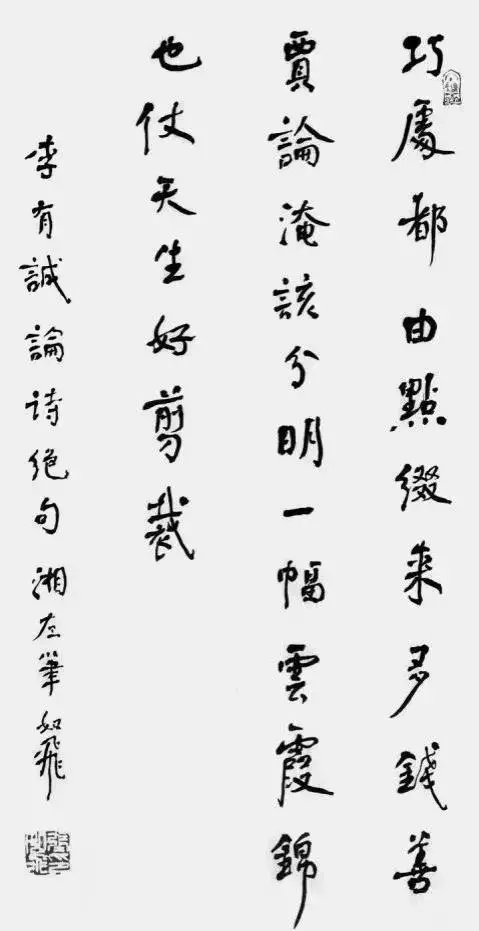 巧處都由點綴来多錢善
賈論淹該分明一幅雲霞錦
也仗天生好剪裁
李有誠論诗绝句湘左筆如飛